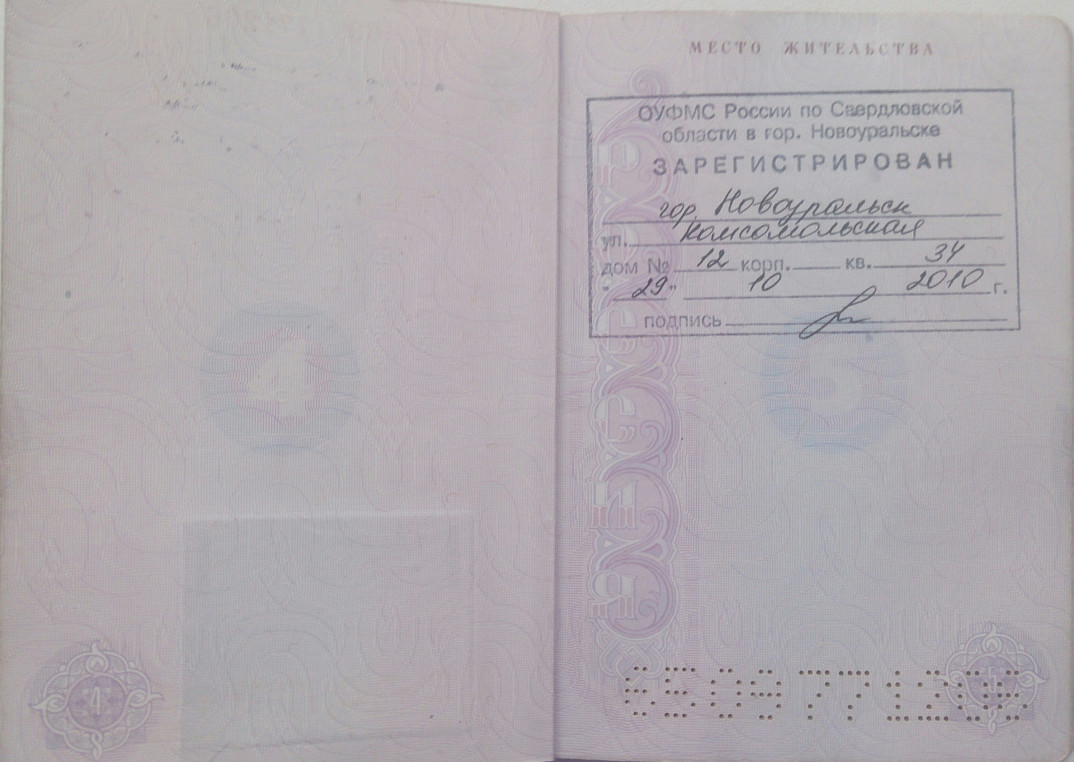 МЕСТО ЖИТЕЛЬСТВА
ОУФМС России по Свердловской
области в гор. Новоуральске
ЗАРЕГИСТРИРОВАН
гор. Новоуральск
ул. Комсомольская
дом № 12 корп. кв. 34
"29" 10 2010 г.
подпись
4
5
65 09 771205